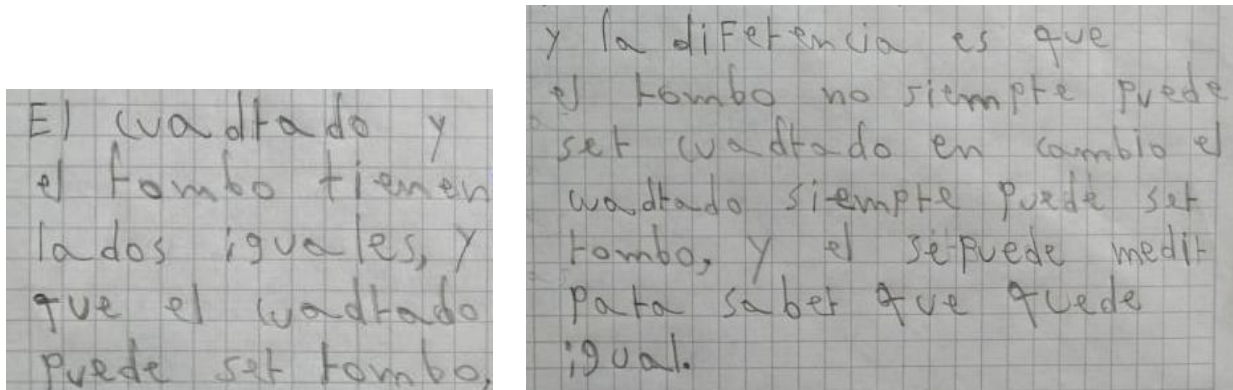 El cuadrado y
el rombo tienen
lados iguales, y
que el cuadrado
puede ser rombo,
y la diferencia es que
el rombo no siempre puede
ser cuadrado en cambio el
cuadrado siempre puede ser
rombo, y el se puede medir
para saber que quede
igual.